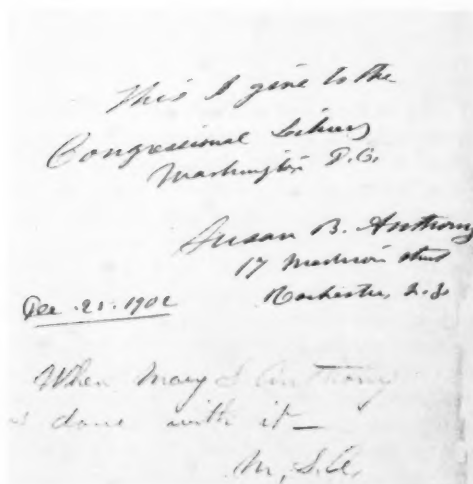 This I give to the
Congressional Library
Washington D.C.
Susan B. Anthony
17 Madison street
Rochester, N.Y.
Dec. 21. 1902
When Mary S. Anthony
is done with it —
M. S. A.